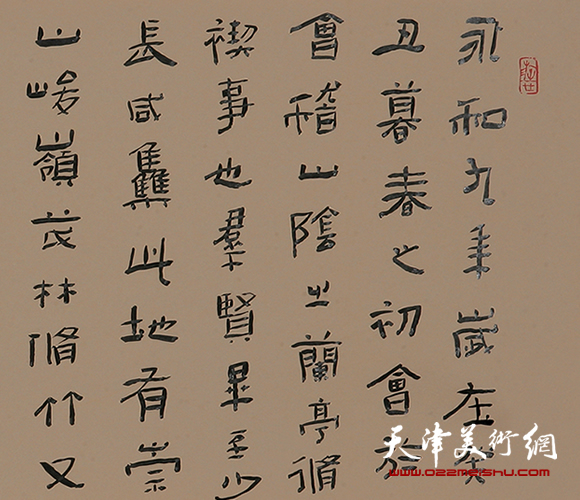 永和九年歲在癸
丑暮春之初會於
會稽山陰之蘭亭脩
禊事也羣賢畢至少
長咸集此地有崇
山峻嶺茂林脩竹又
天津美術網
www.022meishu.com